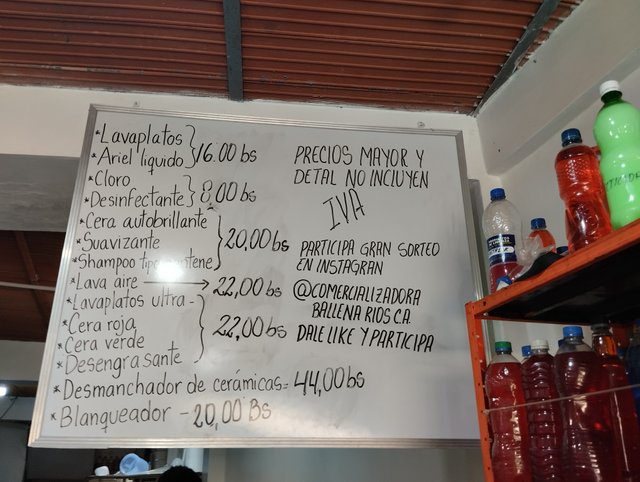 *Lavaplatos
*Ariel liquido } 16.00 bs
*Cloro
*Desinfectante } 8,00 bs
*Cera autobrillante
*Suavizante
*Shampoo } 20,00 bs
*Lava aire → 22,00 bs
*Lavaplatos ultra -
*Cera roja
*Cera verde
*Desengrasante } 22,00 bs
*Desmanchador de cerámicas = 44,00 bs
*Blanqueador - 20,00 Bs
PRECIOS MAYOR Y
DETAL NO INCLUYEN
IVA
PARTICIPA GRAN SORTEO
EN INSTAGRAN
@COMERCIALIZADORA
BALLENA RIOS C.A.
DALE LIKE Y PARTICIPA